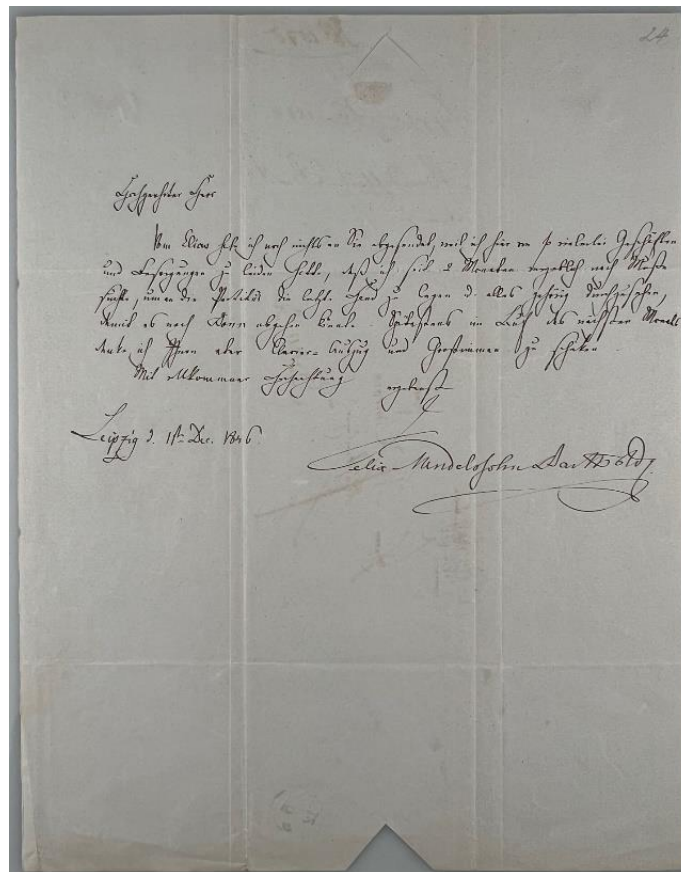 24
Hochgeehrter Herr
Vom Elias habe ich noch nichts an Sie abgesendet, weil ich hier an so vielerlei Geschäften
und Besorgungen zu leiden hatte, daß ich seit 2 Monaten vergeblich nach Muße
suchte, um an die Partitur die letzte Hand zu legen u. alles gehörig durchzusehen,
damit es nach Bonn abgehen könnte. Spätestens im Lauf des nächsten Monats
denke ich Ihnen aber Clavier-Auszug und Chorstimmen zu schicken.
Mit vollkommner Hochachtung ergebenst
Leipzig d. 1st Dec. 1846.
Felix Mendelssohn Bartholdy